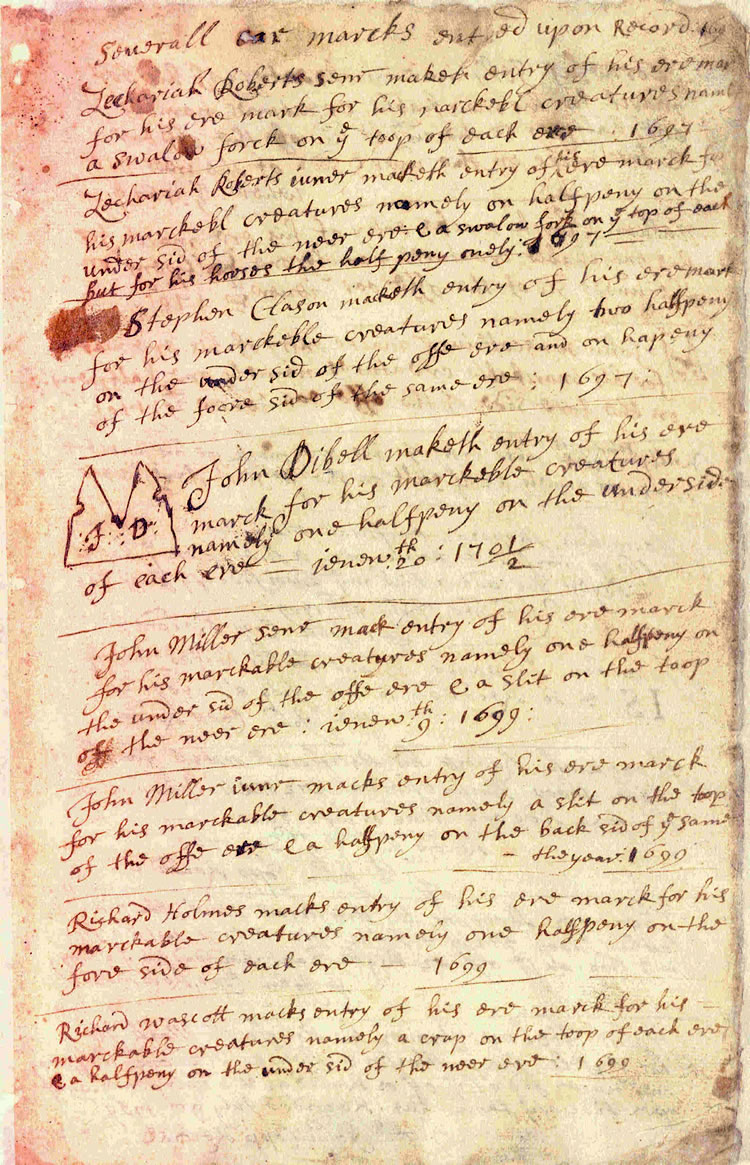 Severall ear marcks entred upon Record 169
Zechariah Roberts senr maketh entry of his ere mar
for his ere mark for his marckebl creatures naml
a swalow forck on ye toop of each ere : 1697
Zechariah Roberts iuner macketh entry of his ere marck fo
his marckebl creatures namely on halfpeny on the
under sid of the neer ere & a swalow fork on ye top of each
But for his horses the half peny onely: 1697
Stephen Clason macketh entry of his ere mark
for his marckeble creatures namely two halfpeny
on the under sid of the offe ere and on hapeny
of the foore sid of the same ere : 1697 :
John Dibell maketh entry of his ere
marck for his marckeble creatures
J : D
namely one halfpeny on the underside
of each ere — ienew 20th : 170 1/2
John Miller senr mack entry of his ere marck
for his marckable creatures namely one halfpeny on
the under sid of the offe ere & a slit on the toop
off the neer ere : ienew 9th : 1699 :
John Miller iunr macks entry of his ere marck
for his marckable creatures namely a slit on the toop
of the offe ere & a halfpeny on the back sid of ye same
- the year : 1699
Richard Holmes macks entry of his ere marck for his
marckable creatures namely one halfpeny on the
fore side of each ere — 1699
Richard wascott macks entry of his ere marck for his
marckable creatures namely a crop on the toop of each ere
& a halfpeny on the under sid of the neer ere : 1699